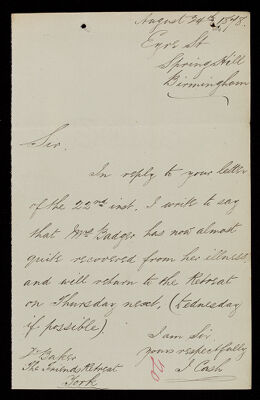 August 24th 1878.
Eyre St
Spring Hill
Birmingham
Sir.
In reply to your letter
of the 22nd inst. I write to say
that Mrs Badger has now almost
quite recovered from her illness,
and will return to the Retreat
on Thursday next, (Wednesday
if possible)
I am Sir
yours respectfully
J Cash
Dr Baker
The Friends Retreat
York